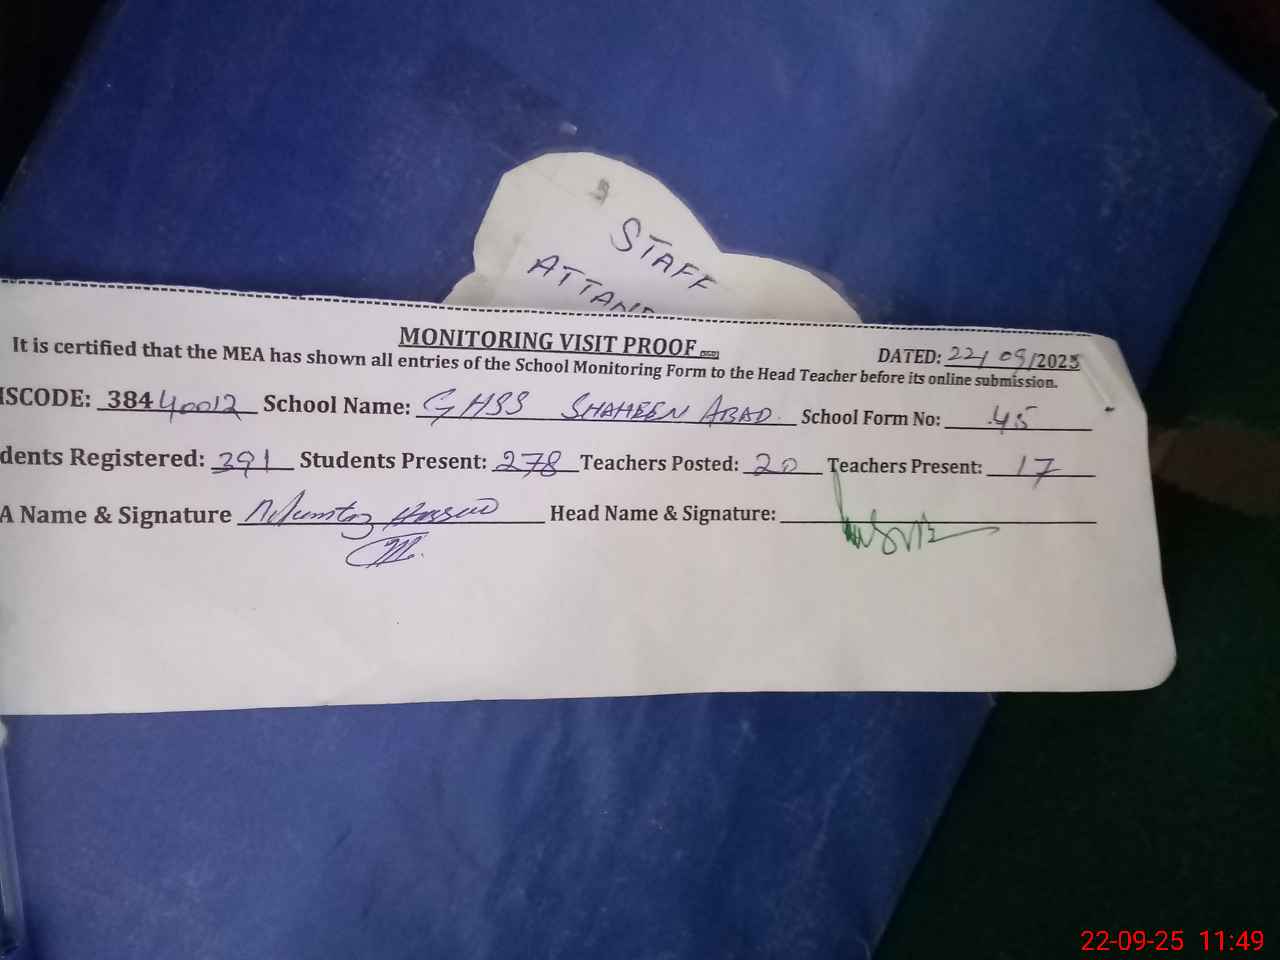 STAFF
ATTAND
MONITORING VISIT PROOF
DATED: 22/09/2025
It is certified that the MEA has shown all entries of the School Monitoring Form to the Head Teacher before its online submission.
ISCODE: 38440012 School Name: GHSS SHAHEEN ABAD. School Form No: 45
dents Registered: 391 Students Present: 278 Teachers Posted: 20 Teachers Present: 17
A Name & Signature Mumtaz Head Name & Signature:
22-09-25 11:49